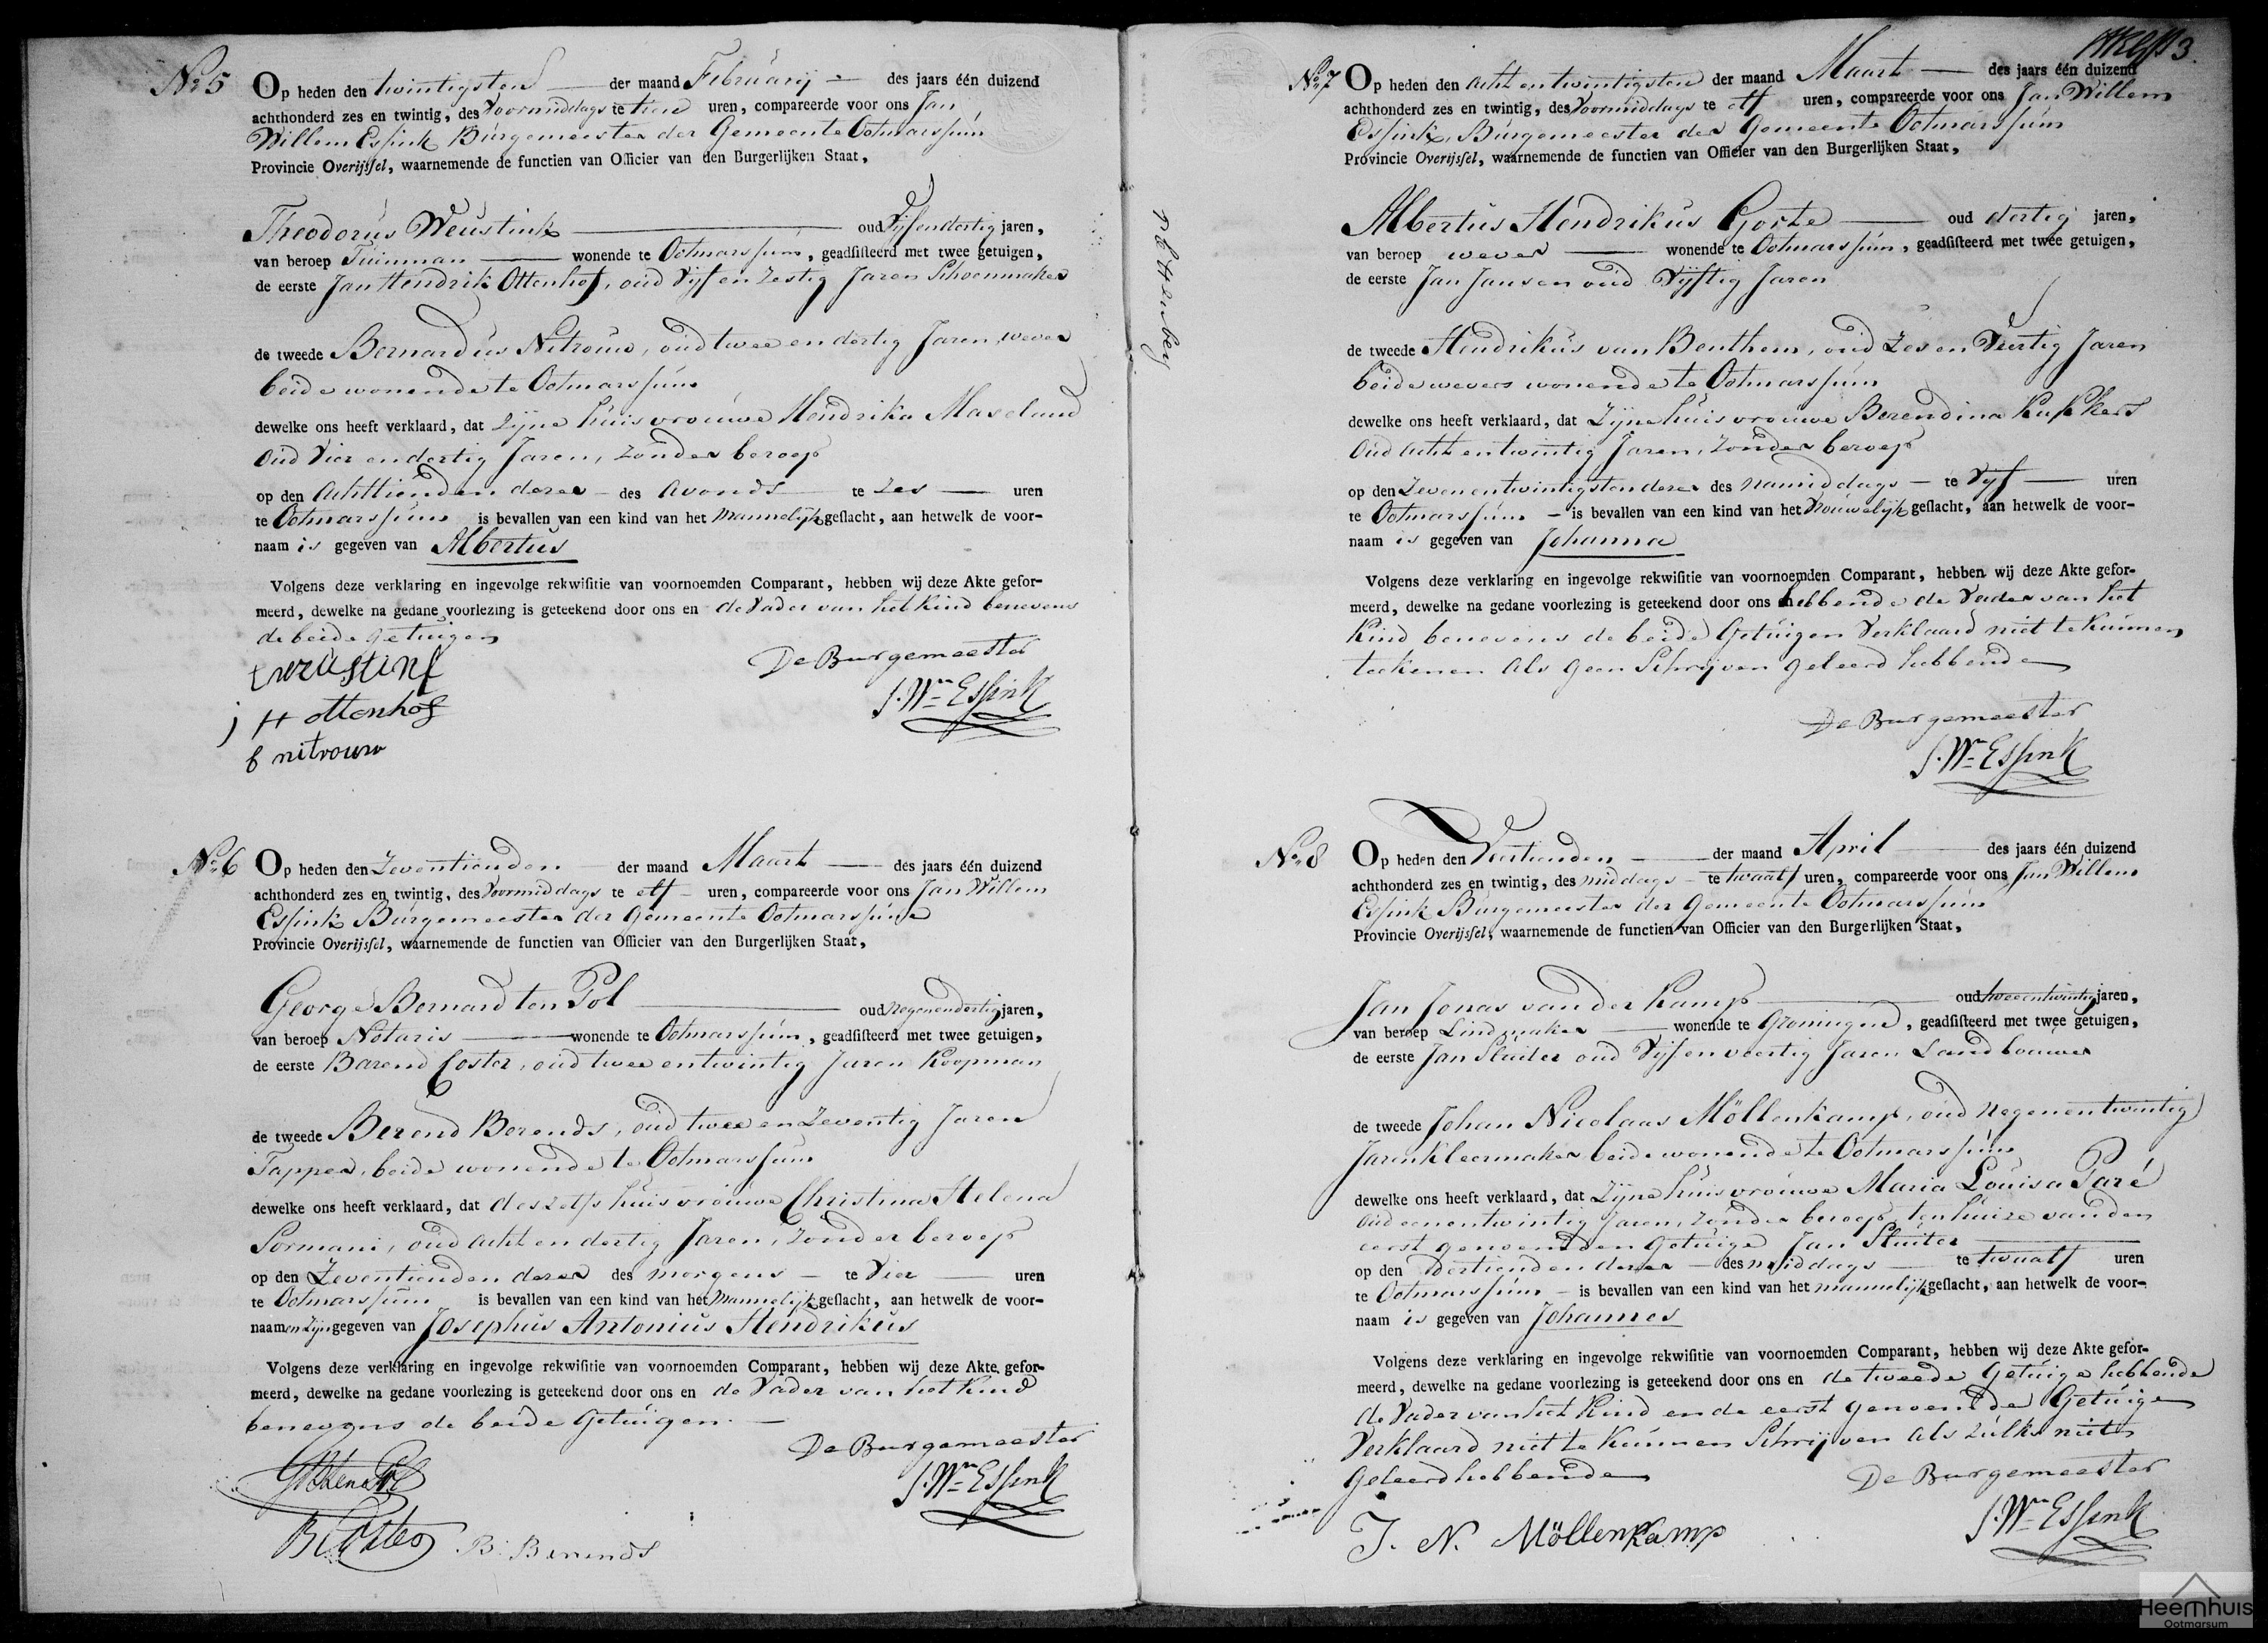 No 5 Op heden den twintigsten der maand Februarij des jaars één duizend
achthonderd zes en twintig, des Voormiddags te tien uren, compareerde voor ons Jan
Willem Essink Burgemeester der Gemeente Ootmarssum
Provincie Overijssel, waarnemende de functien van Officier van den Burgerlijken Staat,
Theodorus Weustink oud Vijfendertig jaren,
van beroep Tuinman wonende te Ootmarssum, geadsisteerd met twee getuigen,
de eerste Jan Hendrik Ottenhof, oud Vijf en Zestig Jaren Schoenmaker
de tweede Bernardus Nitrouw, oud twee en dertig Jaren, wever
beide wonende te Ootmarssum
dewelke ons heeft verklaard, dat Zijne huisvrouwe Hendrika Maseland
Oud Vier en dertig Jaren, Zonder beroep
op den Achttienden dezer des Avonds te Zes uren
te Ootmarssum is bevallen van een kind van het Mannelijk geslacht, aan hetwelk de voor-
naam is gegeven van Albertus
Volgens deze verklaring en ingevolge rekwisitie van voornoemden Comparant, hebben wij deze Akte gefor-
meerd, dewelke na gedane voorlezing is geteekend door ons en de Vader van het Kind benevens
de beide getuigen
De Burgemeester
J. Wm Essink
j H ottenhof
b nitrouw
No 6 Op heden den Zeventienden der maand Maart des jaars één duizend
achthonderd zes en twintig, des Voormiddags te elf uren, compareerde voor ons Jan Willem
Essink Burgemeester der Gemeente Ootmarssum
Provincie Overijssel, waarnemende de functien van Officier van den Burgerlijken Staat,
George Bernard ten Pol oud Negenendertig jaren,
van beroep Notaris wonende te Ootmarssum, geadsisteerd met twee getuigen,
de eerste Barend Coster, oud twee entwintig Jaren Koopman
de tweede Berend Berends, oud twee en Zeventig Jaren
Tapper, beide wonende te Ootmarssum
dewelke ons heeft verklaard, dat deszelfs huisvrouwe Christina Helena
Sormani, oud acht en dertig Jaren, Zonder beroep
op den Zeventienden dezer des morgens te Vier uren
te Ootmarssum is bevallen van een kind van het Mannelijk geslacht, aan hetwelk de voor-
naamen Zijn gegeven van Josephus Antonius Hendrikus
Volgens deze verklaring en ingevolge rekwisitie van voornoemden Comparant, hebben wij deze Akte gefor-
meerd, dewelke na gedane voorlezing is geteekend door ons en de Vader van het Kind
benevens de beide Getuigen.
De Burgemeester
J. Wm Essink
B Coster
B. Berends
3.
No 7 Op heden den Acht entwintigsten der maand Maart des jaars één duizend
achthonderd zes en twintig, des Voormiddags te elf uren, compareerde voor ons Jan Willem
Essink, Burgemeester der Gemeente Ootmarssum
Provincie Overijssel, waarnemende de functien van Officier van den Burgerlijken Staat,
Albertus Hendrikus Gorte oud dertig jaren,
van beroep wever wonende te Ootmarssum, geadsisteerd met twee getuigen,
de eerste Jan Jansen oud Vijftig Jaren
de tweede Hendrikus van Benthem, oud Zes en Veertig Jaren
beide wevers wonende te Ootmarssum
dewelke ons heeft verklaard, dat Zijne huisvrouwe Berendina
Oud acht entwintig Jaren, Zonder beroep
op den Zevenentwintigsten dezer des Namiddags te Vijf uren
te Ootmarssum is bevallen van een kind van het Vrouwelijk geslacht, aan hetwelk de voor-
naam is gegeven van Johanna
Volgens deze verklaring en ingevolge rekwisitie van voornoemden Comparant, hebben wij deze Akte gefor-
meerd, dewelke na gedane voorlezing is geteekend door ons hebbende de Vader van het
Kind benevens de beide Getuigen Verklaard niet te Kunnen
teekenen Als geen Schrijven geleerd hebbende
De Burgemeester
J. Wm Essink
No 8 Op heden den Veertienden der maand April des jaars één duizend
achthonderd zes en twintig, des middags te twaalf uren, compareerde voor ons Jan Willem
Essink Burgemeester der Gemeente Ootmarssum
Provincie Overijssel, waarnemende de functien van Officier van den Burgerlijken Staat,
Jan Jonas van der Kamp oud tweeentwintig jaren,
van beroep wonende te Groningen, geadsisteerd met twee getuigen,
de eerste Jan Sluiter oud Vijf en veertig Jaren Landbouwer
de tweede Johan Nicolaas Möllenkamp, oud Negenentwintig
Jaren Kleermaker beide wonende te Ootmarssum
dewelke ons heeft verklaard, dat Zijne huisvrouwe Maria Louisa Paré
Oud eenentwintig Jaren, Zonder beroep, ten huize van den
eerst genoemden Getuige Jan Sluiter
op den dertienden dezer des middags te twaalf uren
te Ootmarssum is bevallen van een kind van het mannelijk geslacht, aan hetwelk de voor-
naam is gegeven van Johannes
Volgens deze verklaring en ingevolge rekwisitie van voornoemden Comparant, hebben wij deze Akte gefor-
meerd, dewelke na gedane voorlezing is geteekend door ons en de tweede Getuige hebbende
de Vader van het Kind en de eerst genoemde Getuige
Verklaard niet te Kunnen Schrijven Als zulks niet
Geleerd hebbende
De Burgemeester
J. Wm Essink
J. N. Möllenkamp
Heemhuis
Ootmarsum